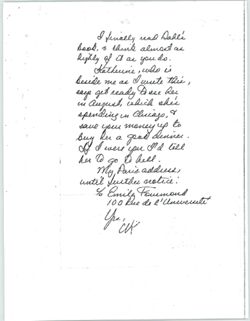 I finally read Dahl's
book & think almost as
highly of it as you do.
Katherine, who is
beside me as I write this,
says get ready to see her
in August, which she's
spending in Chicago, &
save your money up to
buy her a good dinner.
If I were you I'd tell
her to go to hell.
My Paris address,
until further notice:
c/o Emily
100 Rue de l'Université
Yrs,